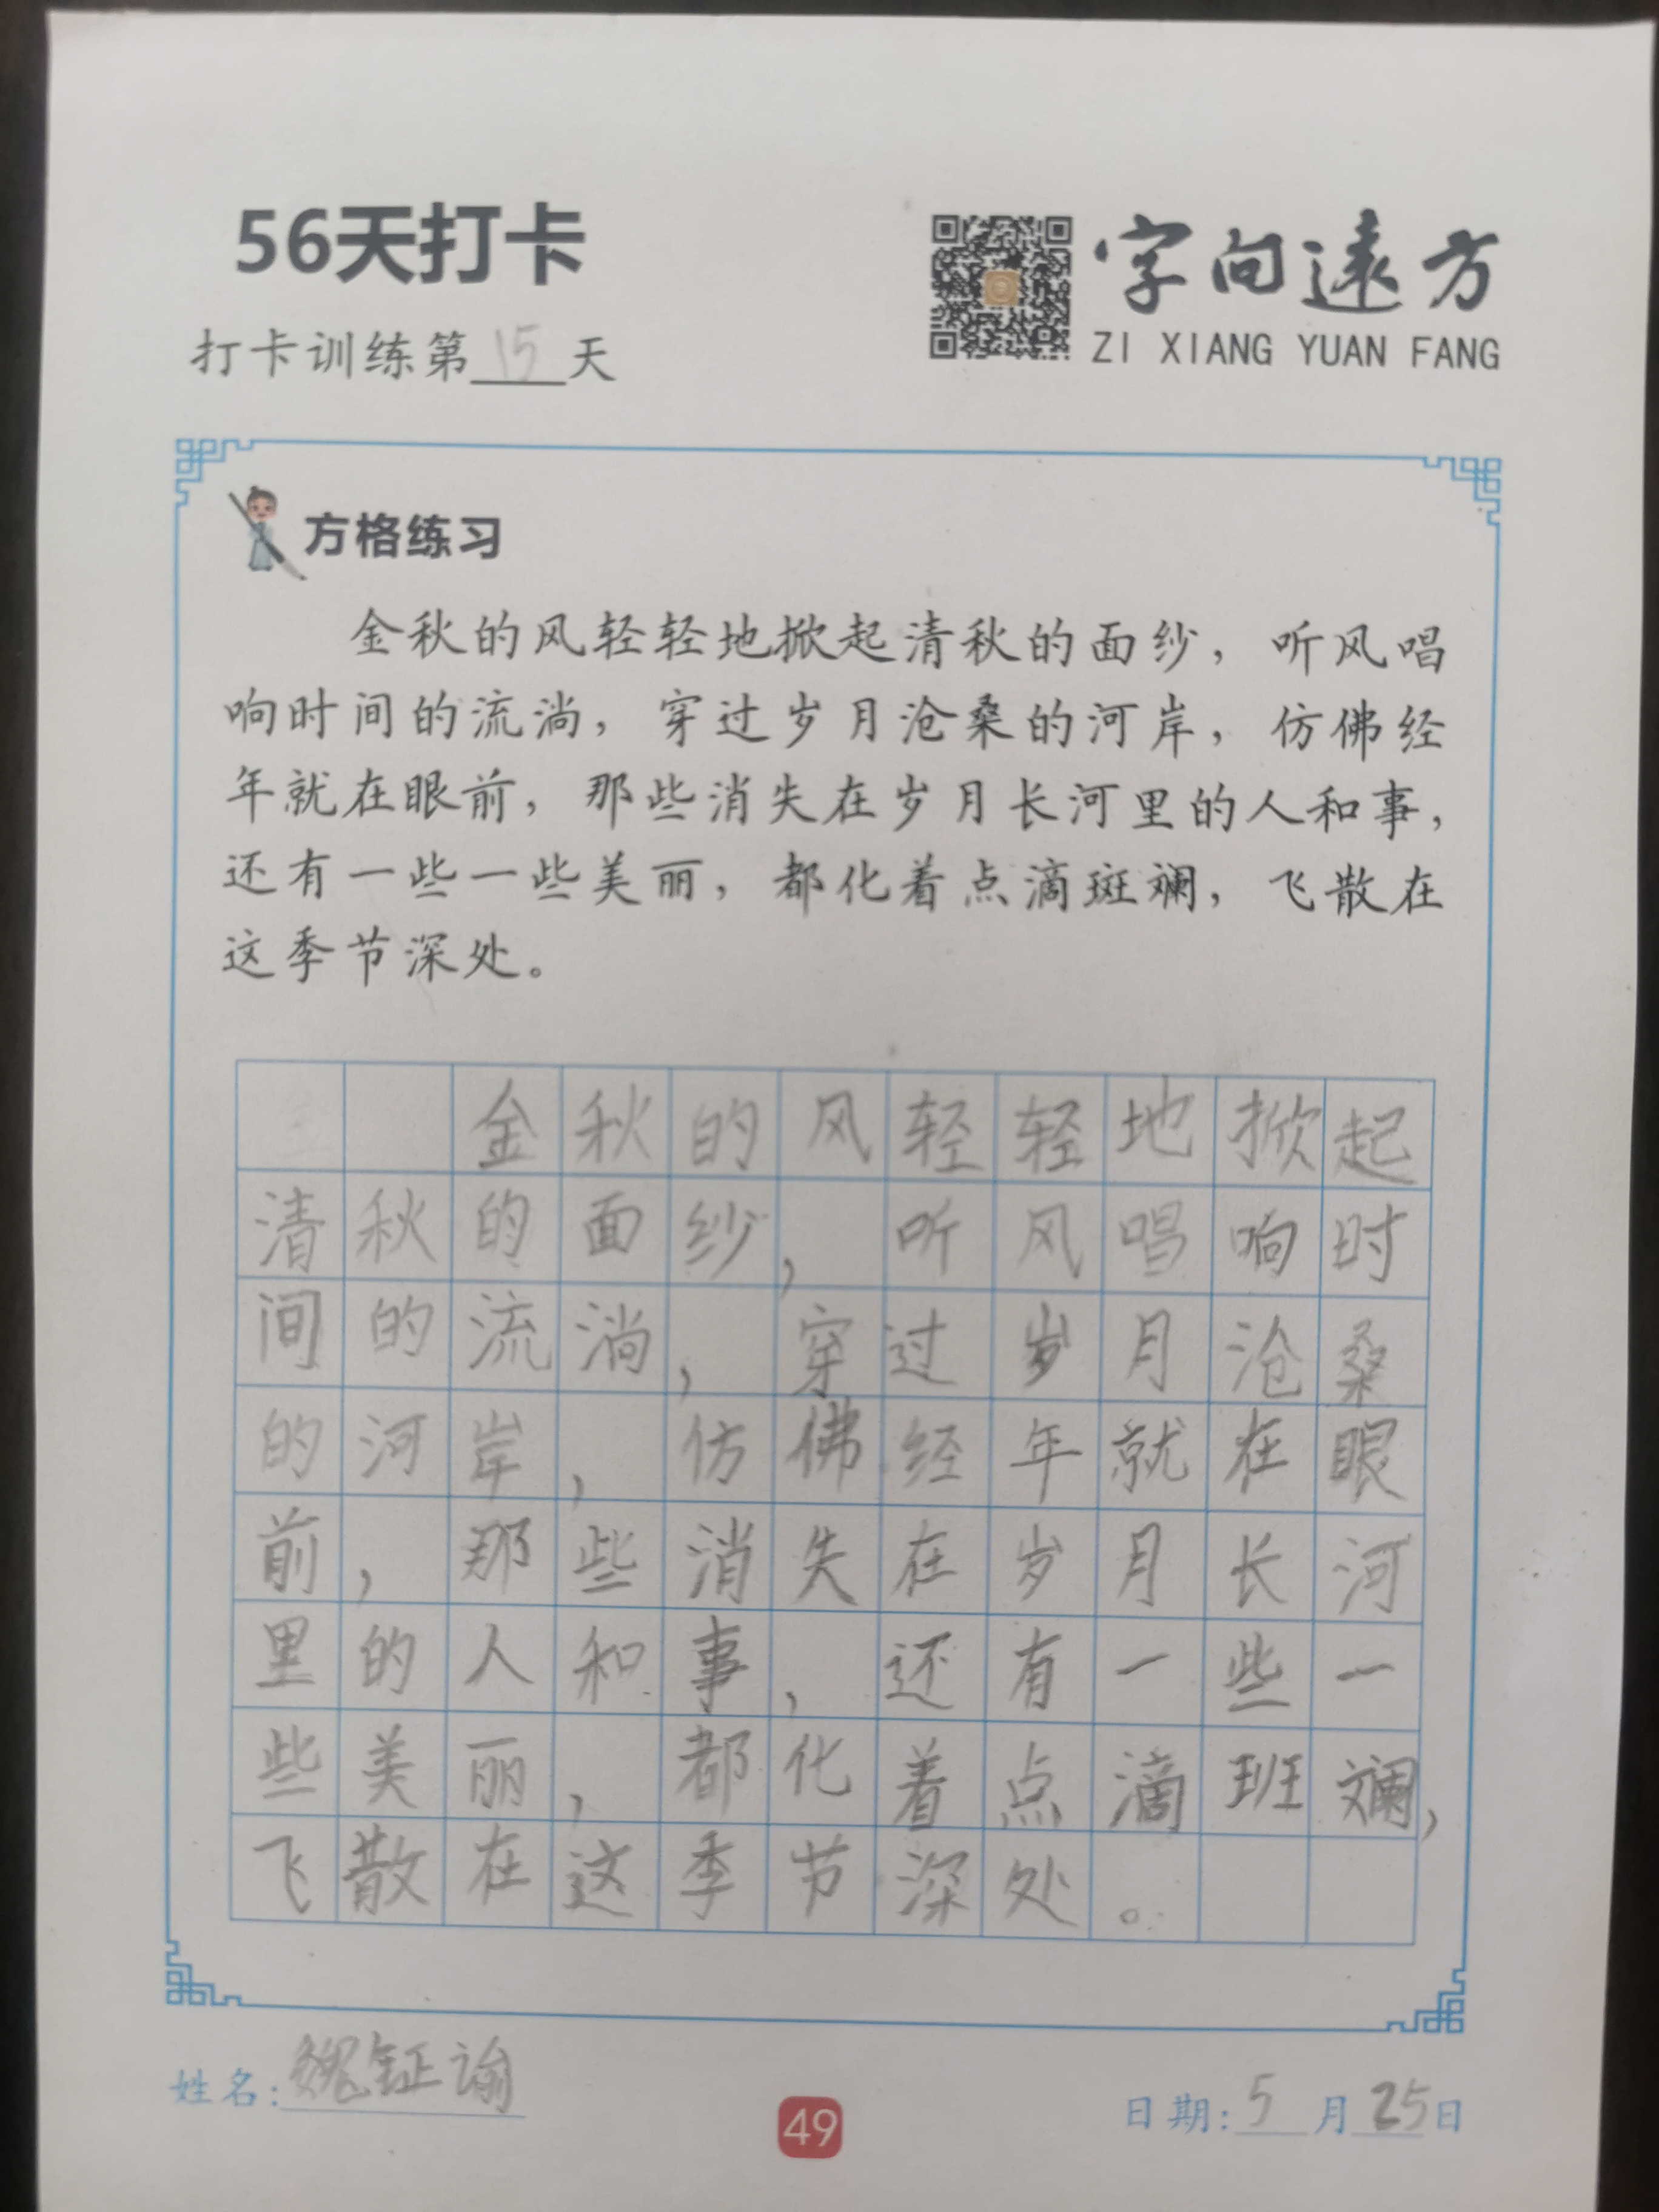 56天打卡
字向遠方
ZI XIANG YUAN FANG
打卡训练第15天
方格练习
金秋的风轻轻地掀起清秋的面纱，听风唱
响时间的流淌，穿过岁月沧桑的河岸，仿佛经
年就在眼前，那些消失在岁月长河里的人和事，
还有一些一些美丽，都化着点滴斑斓，飞散在
这季节深处。
金秋的风轻轻地掀起
清秋的面纱，听风唱响时
间的流淌，穿过岁月沧桑
的河岸，仿佛经年就在眼
前，那些消失在岁月长河
里的人和事，还有一些一
些美丽，都化着点滴班斓，
飞散在这季节深处。
姓名：魏钲谕
49
日期：5月25日